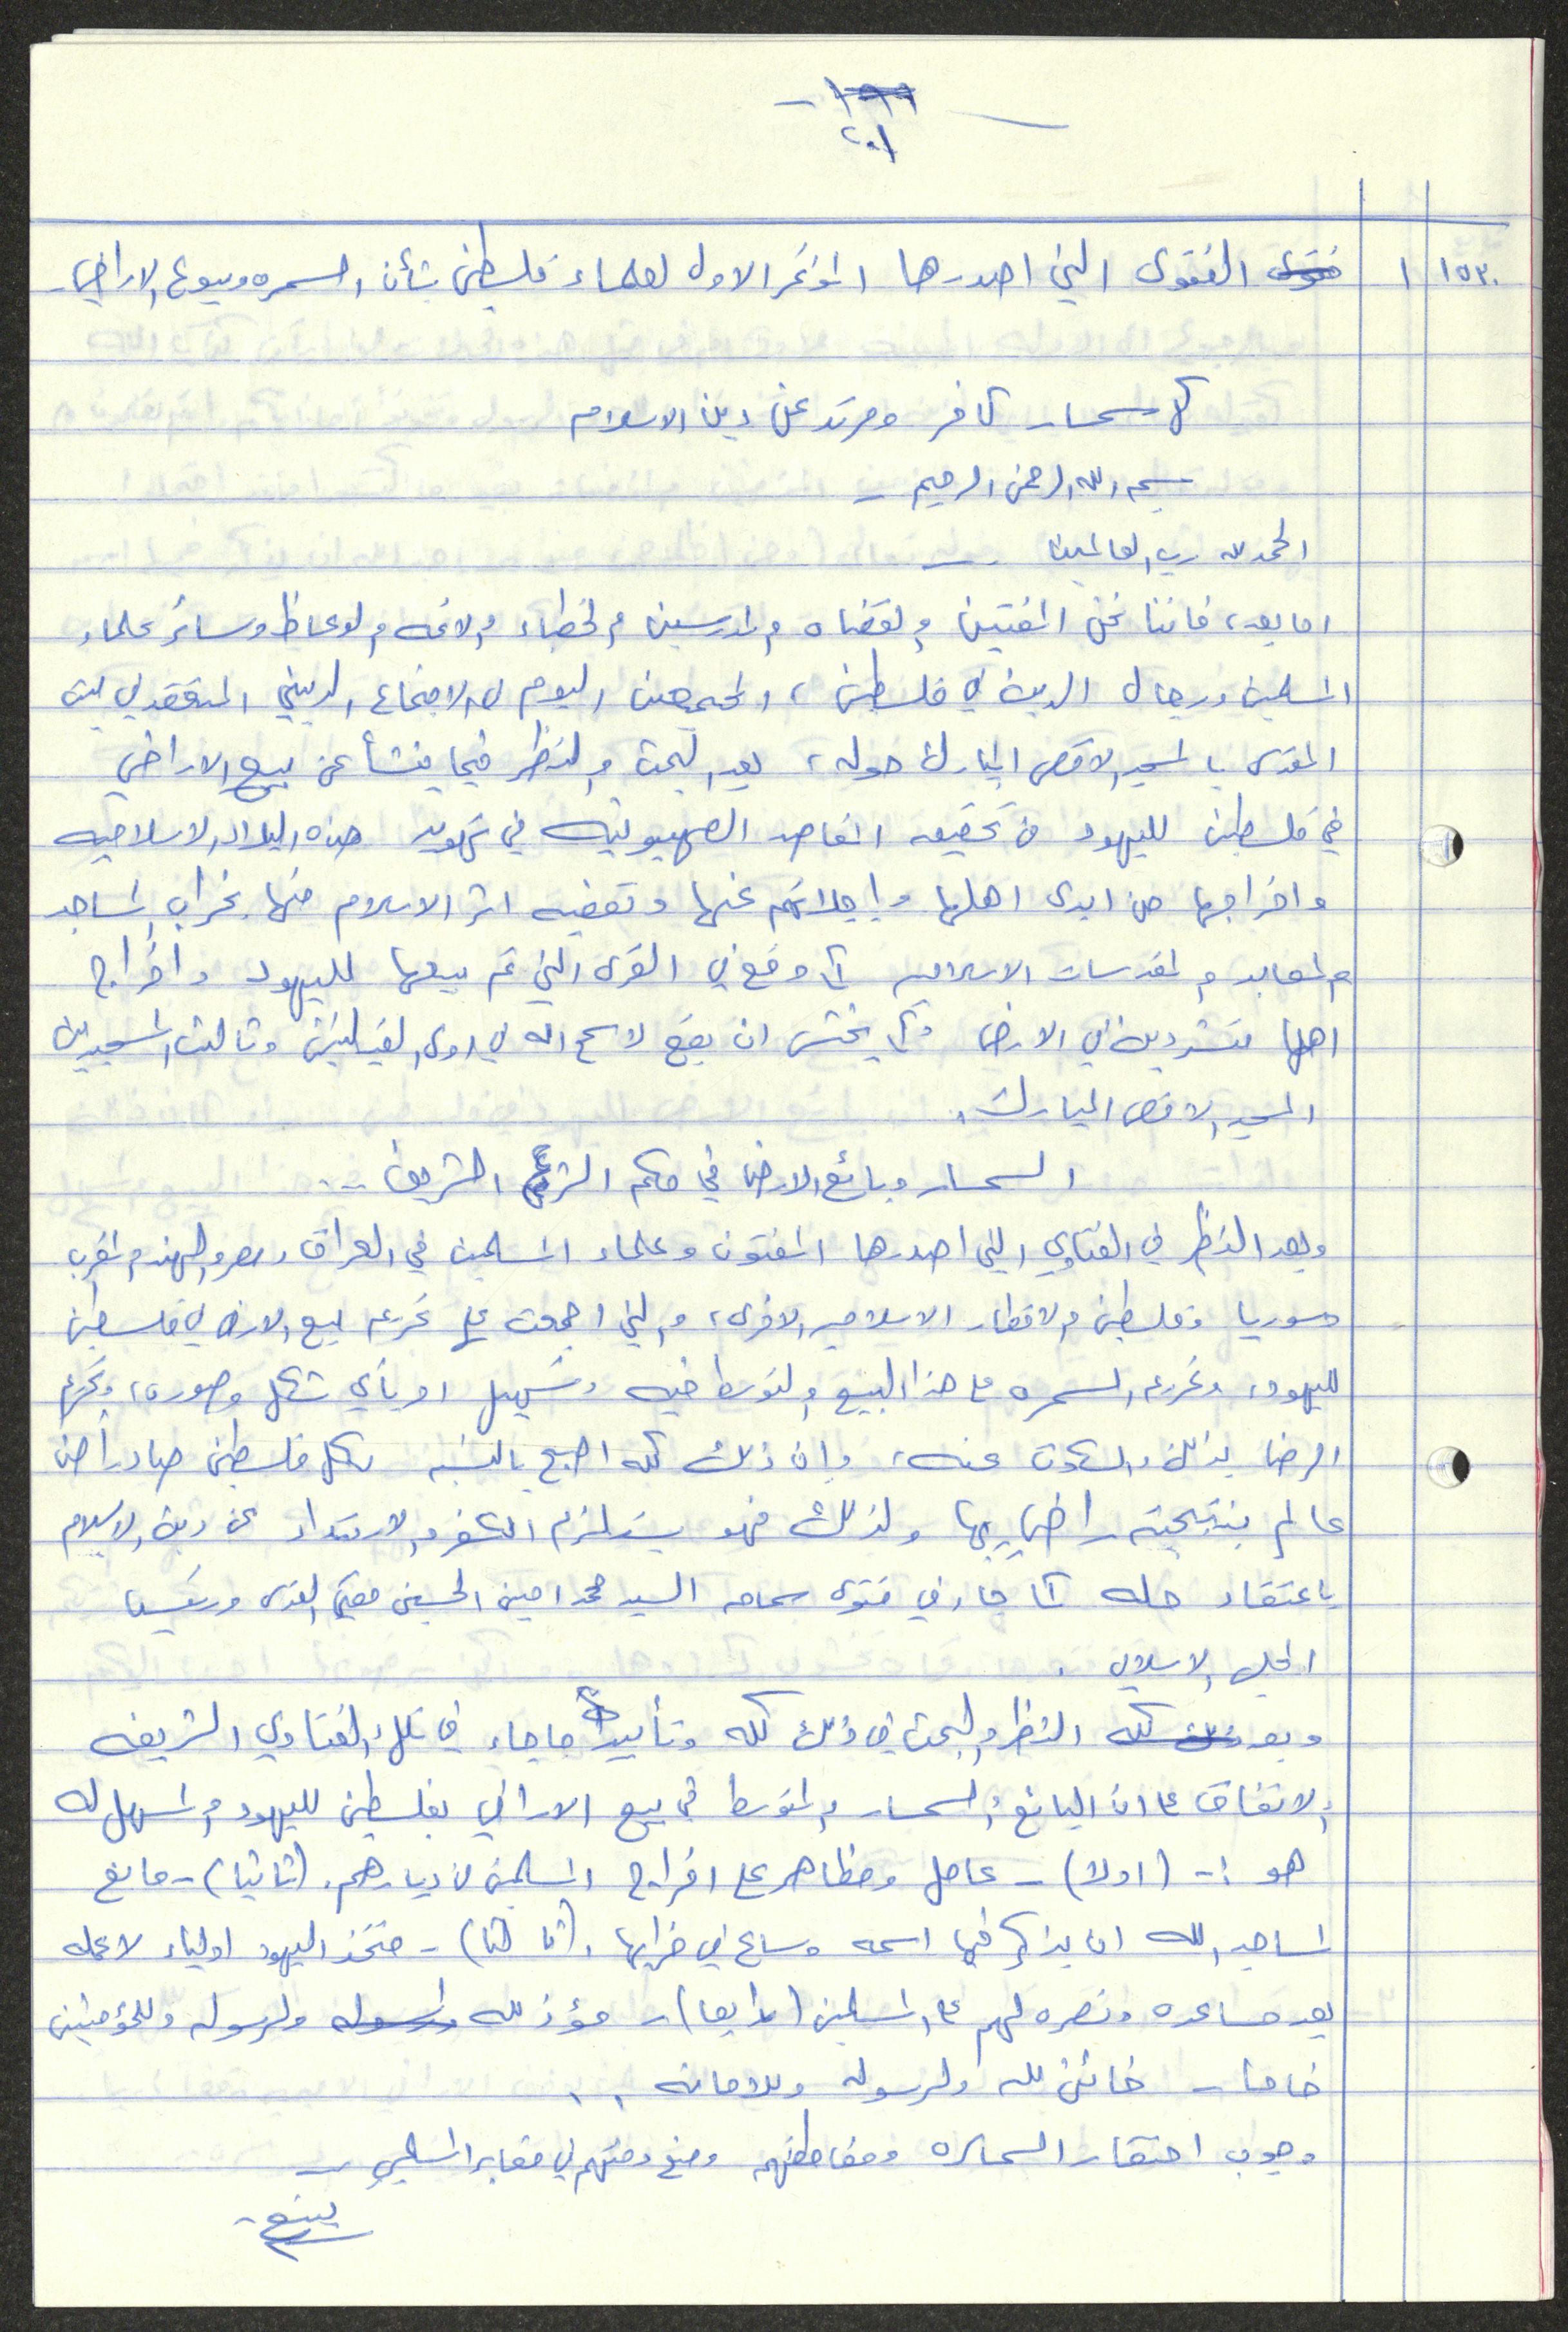 - ١٩٩ -
٢٠١
١٥٣٠ ١ فتوى الفتوى التي اصدرها المؤتمر الاول لعلماء فلسطين بشأن السمسره وبيوع الاراضي
كل سمسار كافر ومرتد عن دين الاسلام
بسم الله الرحمن الرحيم -
الحمد لله رب العالمين
اما بعد، فاننا نحن المفتين والقضاه والمدرسين والخطباء والائمه والوعاظ وسائر علماء
المسلمين ورجال الدين في فلسطين، المجتمعين اليوم في الاجتماع الديني المنعقد في بيت
المقدس بالمسجد الاقصى المبارك حوله، بعد البحث والنظر فيما ينشأ عن بيع الاراضي
في فلسطين لليهود من تحقيق المقاصد الصهيونيه في تهويد هذه البلاد الاسلاميه
واخراجها من ايدي اهلها واجلائهم عنها وتعفيه اثر الاسلام منها بخراب المساجد
والمعابد والمقدسات الاسلاميه كما وقع في القرى التي تم بيعها لليهود واخراج
اهلها متشردين في الارض وكما يخشى ان يقع لا سمح الله في اولى القبلتين وثالث المسجدين
المسجد الاقصى المبارك.
السمسار وبائع الارض في حكم الشرع الشريف ...
وبعد النظر في الفتاوي التي اصدرها المفتون وعلماء المسلمين في العراق ومصر والهند والمغرب
وسوريا وفلسطين والاقطار الاسلاميه الاخرى، والتي اجمعت على تحريم بيع الارض في فلسطين
لليهود، وتحريم السمسره على هذا البيع والتوسط فيه وتسهيل امره بأي شكل وصوره، وتحريم
الرضا بذلك والسكوت عنه، وان ذلك كله اصبح بالنسبه لكل فلسطيني صادراً من
عالم بنتيجته راضٍ بها ولذلك فهو يستلزم الكفر والارتداد عن دين الاسلام
باعتقاد حله كما جاء في فتوى سماحه السيد محمد امين الحسيني مفتي القدس ورئيس
المجلس الاسلامي .
وبعد ذلك كله النظر والبحث في ذلك كله وتأييد ما جاء في تلك الفتاوي الشريفه
والاتفاق على ان البائع والسمسار والمتوسط في بيع الاراضي بفلسطين لليهود والمسهل له
هو :- (اولا) - عامل ومظاهر على اخراج المسلمين من ديارهم. (ثانيا) - مانع
لمساجد الله ان يذكر فيها اسمه وساع في خرابها. (ثالثا) - متخذ اليهود اولياء لان عمله
يعد مساعده ونصره لهم على المسلمين (رابعا) - مؤذ لله ولرسوله ولرسوله وللمؤمنين
خامسا - خائن لله ولرسوله وللامانه ..
وجوب احتقار السماسره ومقاطعتهم ومنع دفنهم في مقابر المسلمين -
يتبع -